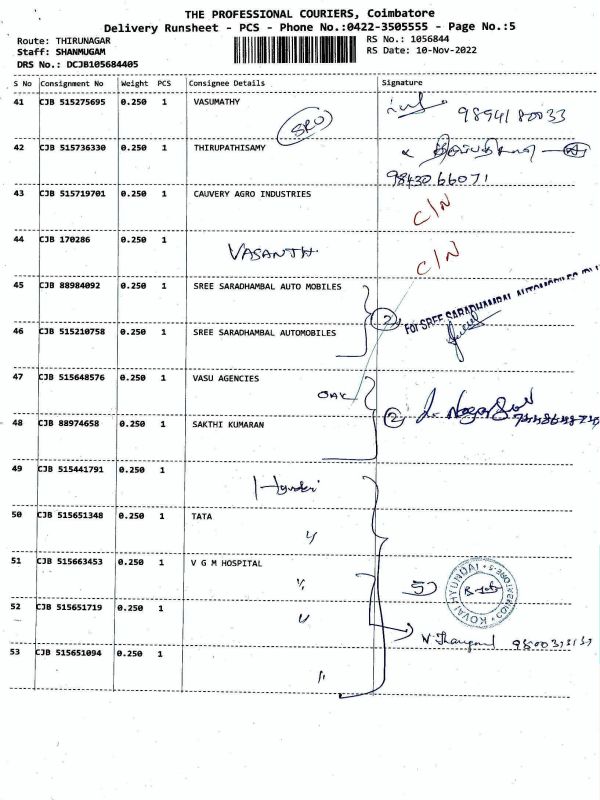 THE PROFESSIONAL COURIERS, Coimbatore
Delivery Runsheet - PCS - Phone No.:0422-3505555 - Page No.:5
Route: THIRUNAGAR
RS No.: 1056844
Staff: SHANMUGAM
RS Date: 10-Nov-2022
DRS No.: DCJB105684405
S No Consignment No Weight PCS Consignee Details Signature
41 CJB 515275695 0.250 1 VASUMATHY
9894180033
SRO
42 CJB 515736330 0.250 1 THIRUPATHISAMY
9843066071
43 CJB 515719701 0.250 1 CAUVERY AGRO INDUSTRIES C/N
44 CJB 170286 0.250 1 VASANTH C/N
45 CJB 88984092 0.250 1 SREE SARADHAMBAL AUTO MOBILES
2 For SREE SARADHAMBAL AUTOMOBILES
46 CJB 515210758 0.250 1 SREE SARADHAMBAL AUTOMOBILES
47 CJB 515648576 0.250 1 VASU AGENCIES
2
48 CJB 88974658 0.250 1 SAKTHI KUMARAN
49 CJB 515441791 0.250 1 Hyundai
50 CJB 515651348 0.250 1 TATA
51 CJB 515663453 0.250 1 V G M HOSPITAL
5) KOVAI HYUNDAI * COIMBATORE-5 *
52 CJB 515651719 0.250 1
53 CJB 515651094 0.250 1